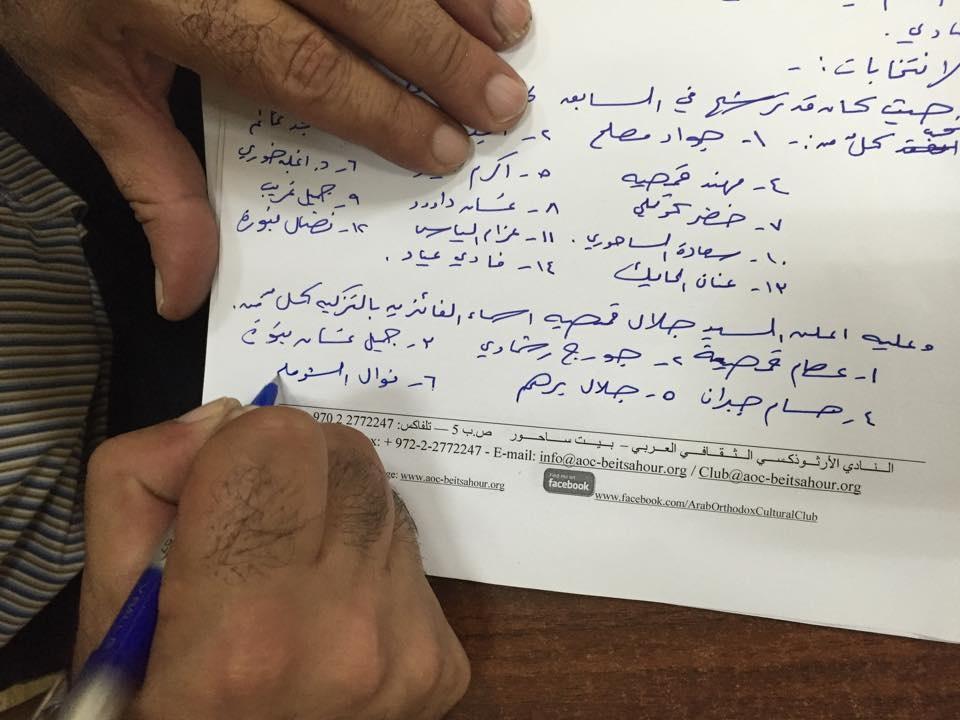 ادي.
لانتخابات :-
حيث كان قد ترشح في السابعه
كلٌ من :- ١- جواد مصلح ٢-
٤- مهند قمصيه ٥- اكرم ٦- د. اغلب خوري
٧- خضر ٨- غسان داوود ٩- جميل غريب
١٠- سعادة الساحوري. ١١- عزام الياس ١٢- نضال
١٣- عنان الحايك ١٤- فادي عياد.
وعليه اعلن السيد جلال قمصيه اسماء الفائزيه بالتزكيه لكل من.
١- عصام قمصية ٢- جورج رشماوي ٣- جميل غسان بنورة
٤- حسام جبران ٥- جلال برهم ٦- نوال
النادي الأرثوذكسي الثقافي العربي – بيت ساحور ص.ب 5 — تلفاكس: 2772247 2 970
x: + 972-2-2772247 - E-mail: info@aoc-beitsahour.org / Club@aoc-beitsahour.org
ge: www.aoc-beitsahour.org Find me on facebook www.facebook.com/ArabOrthodoxCulturalClub